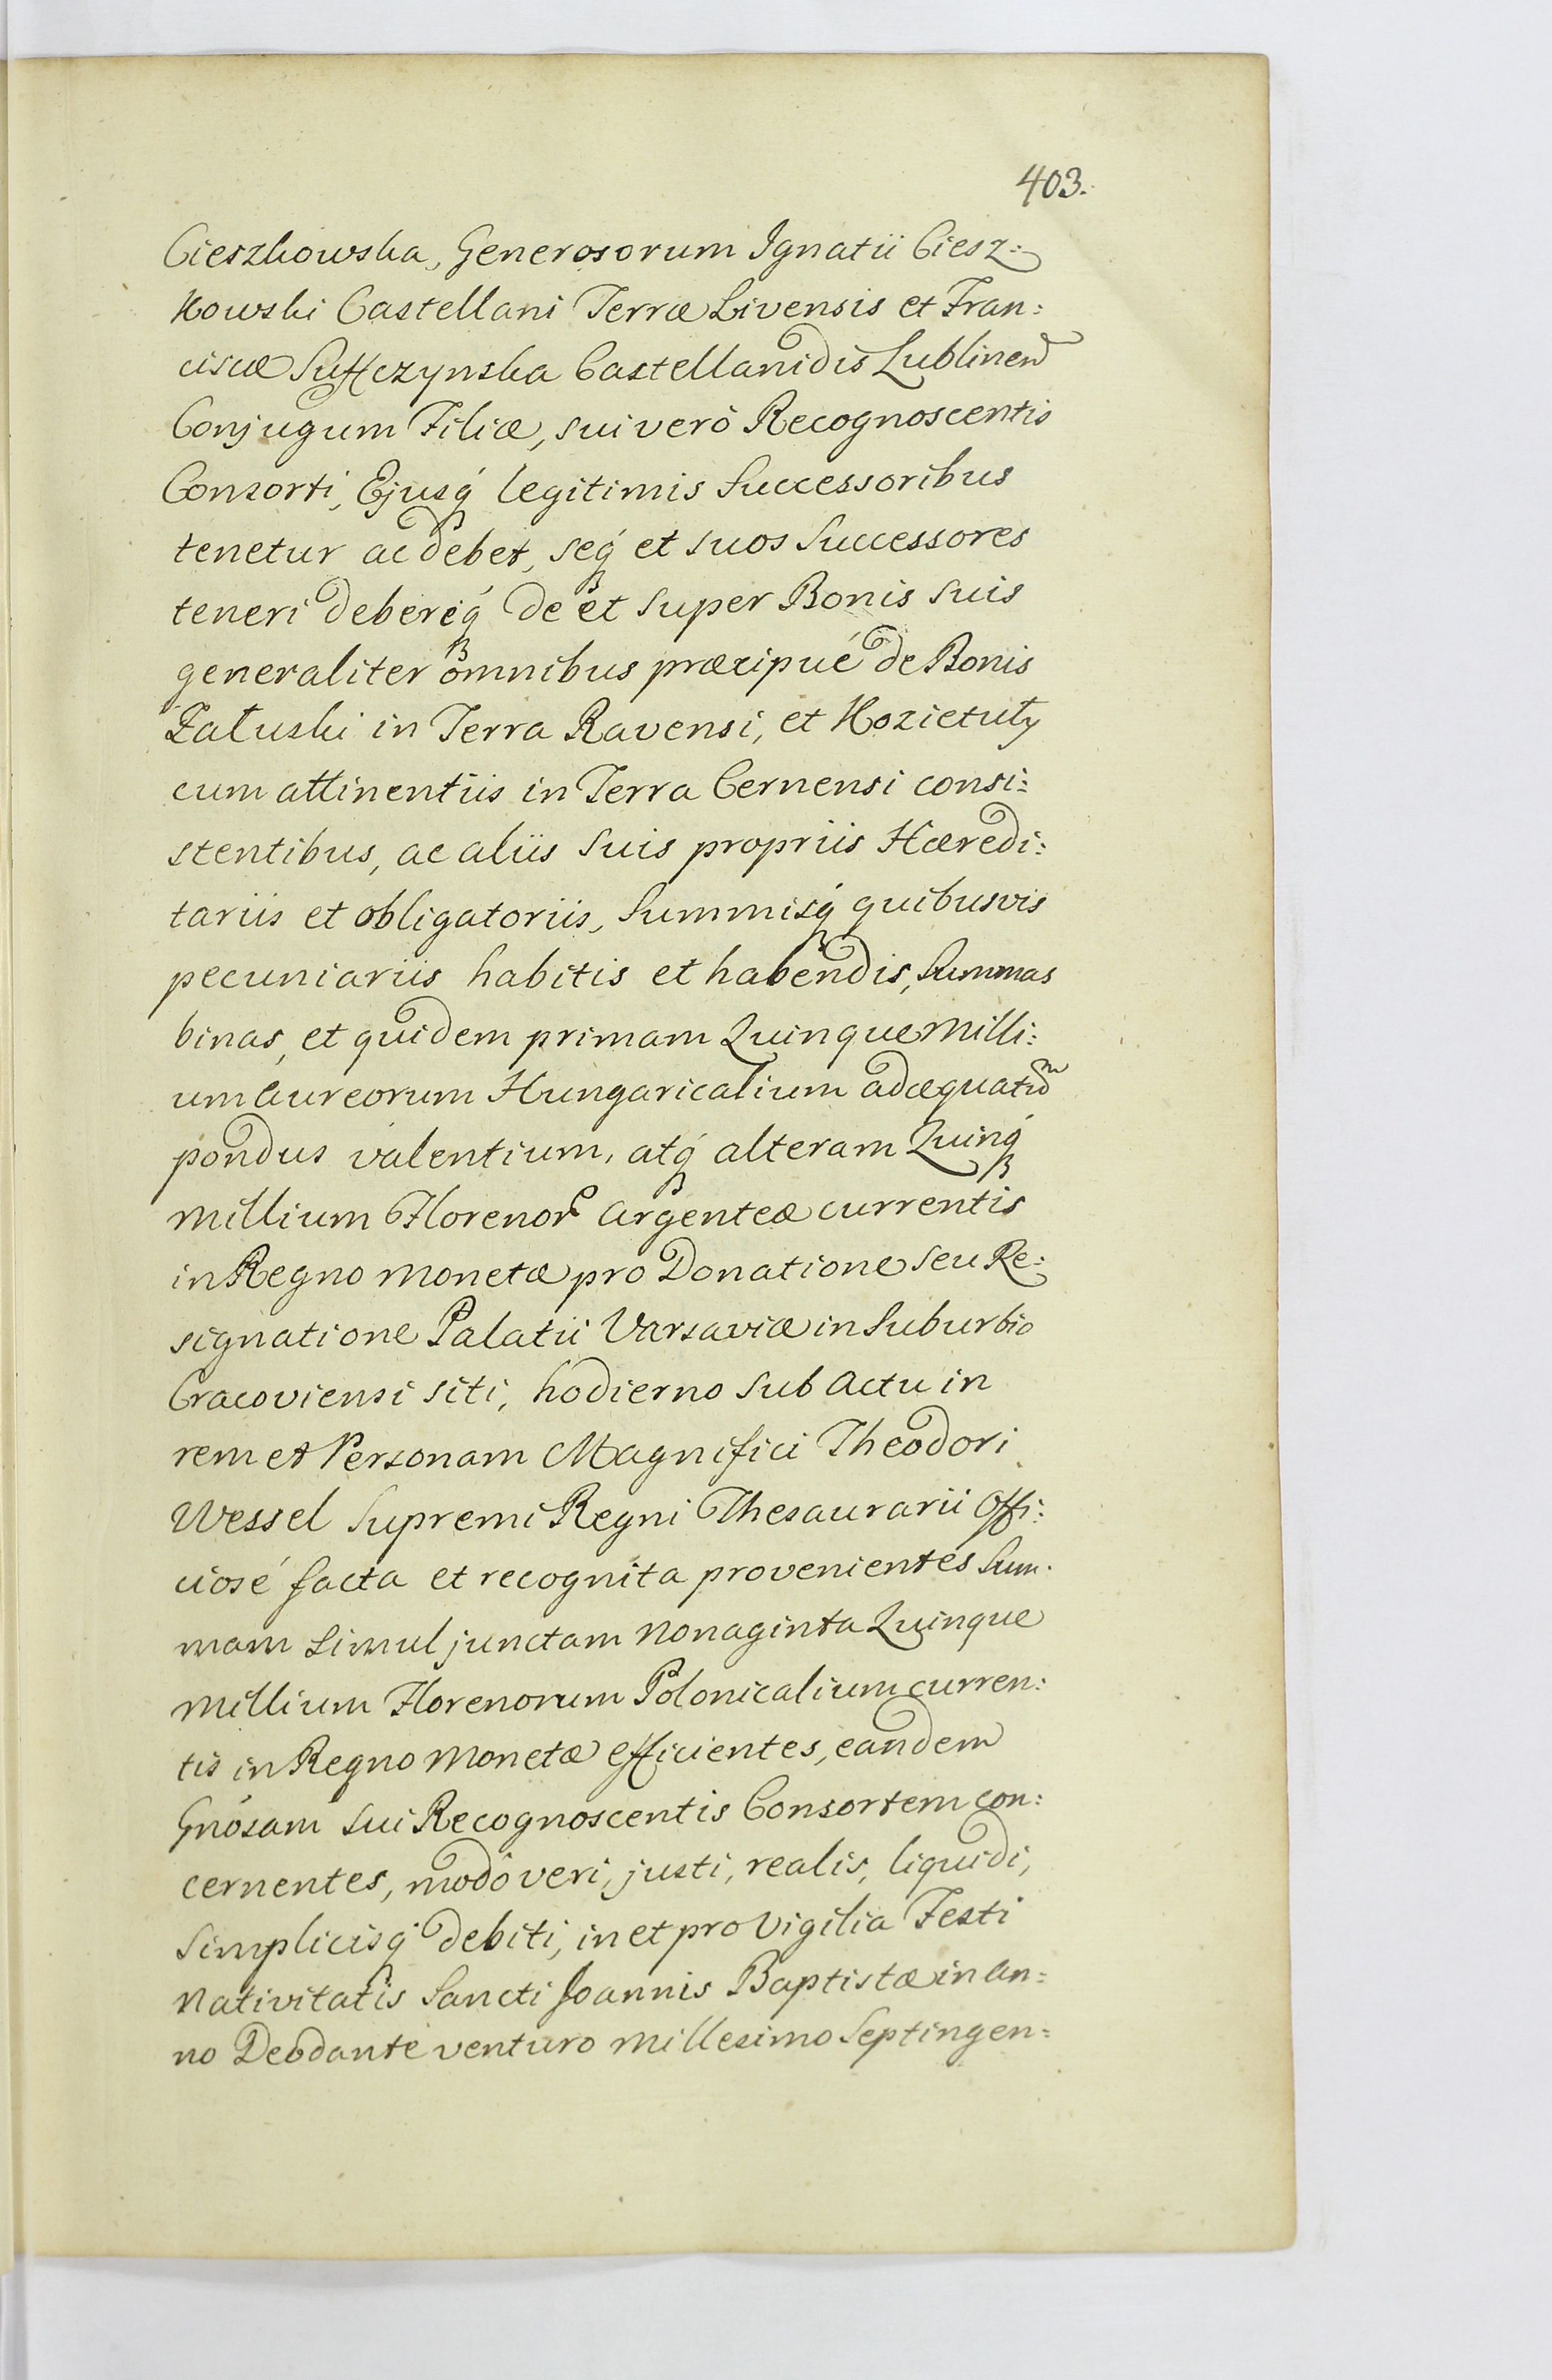 403.
Cieszkowska, Generosorum Ignatii Ciesz:
kowski Castellani Terræ Livensis et Fran:
ciscæ Suffczynska Castellanidis Lublinen
Conjugum Filiæ, sui verò Recognoscentis
Consorti, Ejusq́ legitimis Successoribus
tenetur ac debet, seq́ et suos Successores
teneri debereq́ de et super Bonis suis
generaliter omnibus præcipué de Bonis
Załuski in Terra Ravensi, et Kozietuły
cum attinentiis in Terra Cernensi consi:
stentibus, ac aliis suis propriis Hæredi:
tariis et obligatoriis, Summisq́ quibusvis
pecuniariis habitis et habendis, Summas
binas, et quidem primam Quinque Milli:
um aureorum Hungaricalium adæquatum
pondus valentium, atq́ alteram Quinq́
Millium Florenor argenteæ currentis
in Regno Monetæ pro Donatione seu Re:
signatione Palatii Varsaviæ in Suburbio
Cracoviensi siti, hodierno sub actu in
rem et Personam Magnifici Theodori
Wessel Supremi Regni Thesaurarii Offi:
ciosé facta et recognita provenientes Sum.
mam simul junctam Nonaginta Quinque
Millium Florenorum Polonicalium curren:
tis in Regno Monetæ efficientes, eandem
Gnosam sui Recognoscentis Consortem con:
cernentes, modò veri, justi, realis, liquidi,
simplicisq́ debiti, in et pro Vigilia Festi
Nativitatis Sancti Joannis Baptistæ in an:
no Deo dante venturo Millesimo Septingen: